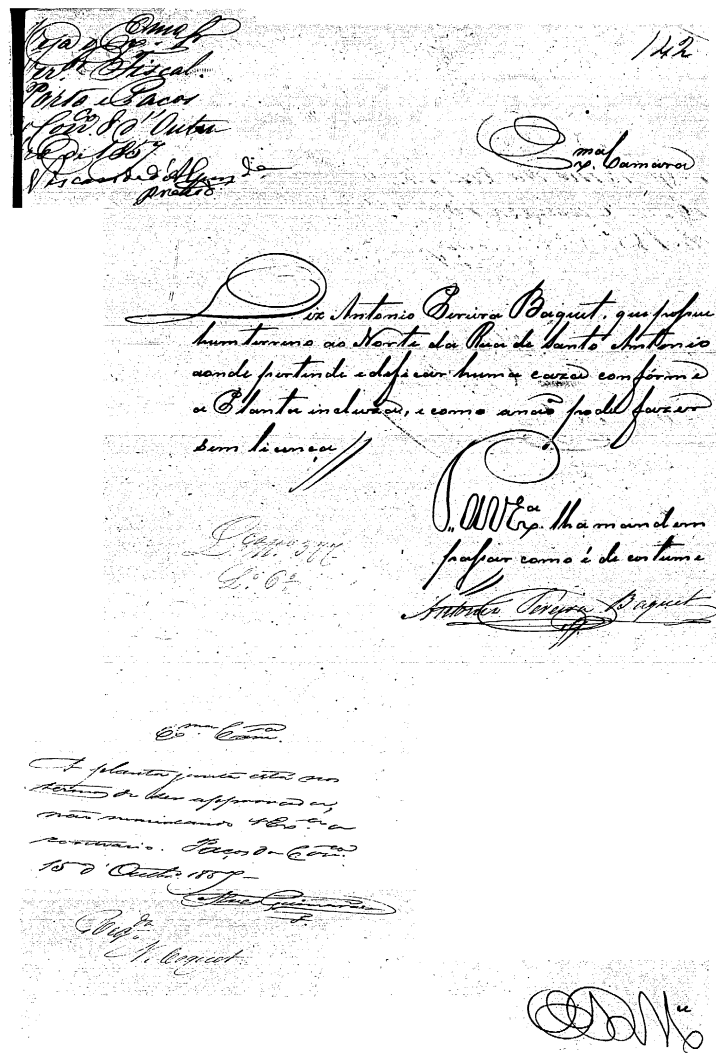 Veja o Exmo Snr
Ver.or Fiscal.
Porto e Paços
do Conc.o 8 d' Outu
bro de 1857
Visconde d'
142
Exma Camara
Diz Antonio Pereira Baquet, que possue
hum terreno ao Norte da Rua de Santo Antonio
aonde pertende edeficar huma caza confórme
a Planta incluza, e como a não pode fazer
sem licença
P. a V Exa. lha mandem
passar como é de costume
Antonio Pereira Baquet
N. 377
L.o 6o
Exma Cama.
A planta junta está nos
termos de ser approvada,
não mandando V Exa o
contrario. Paços do Conco.
15 d' Outo. 1857